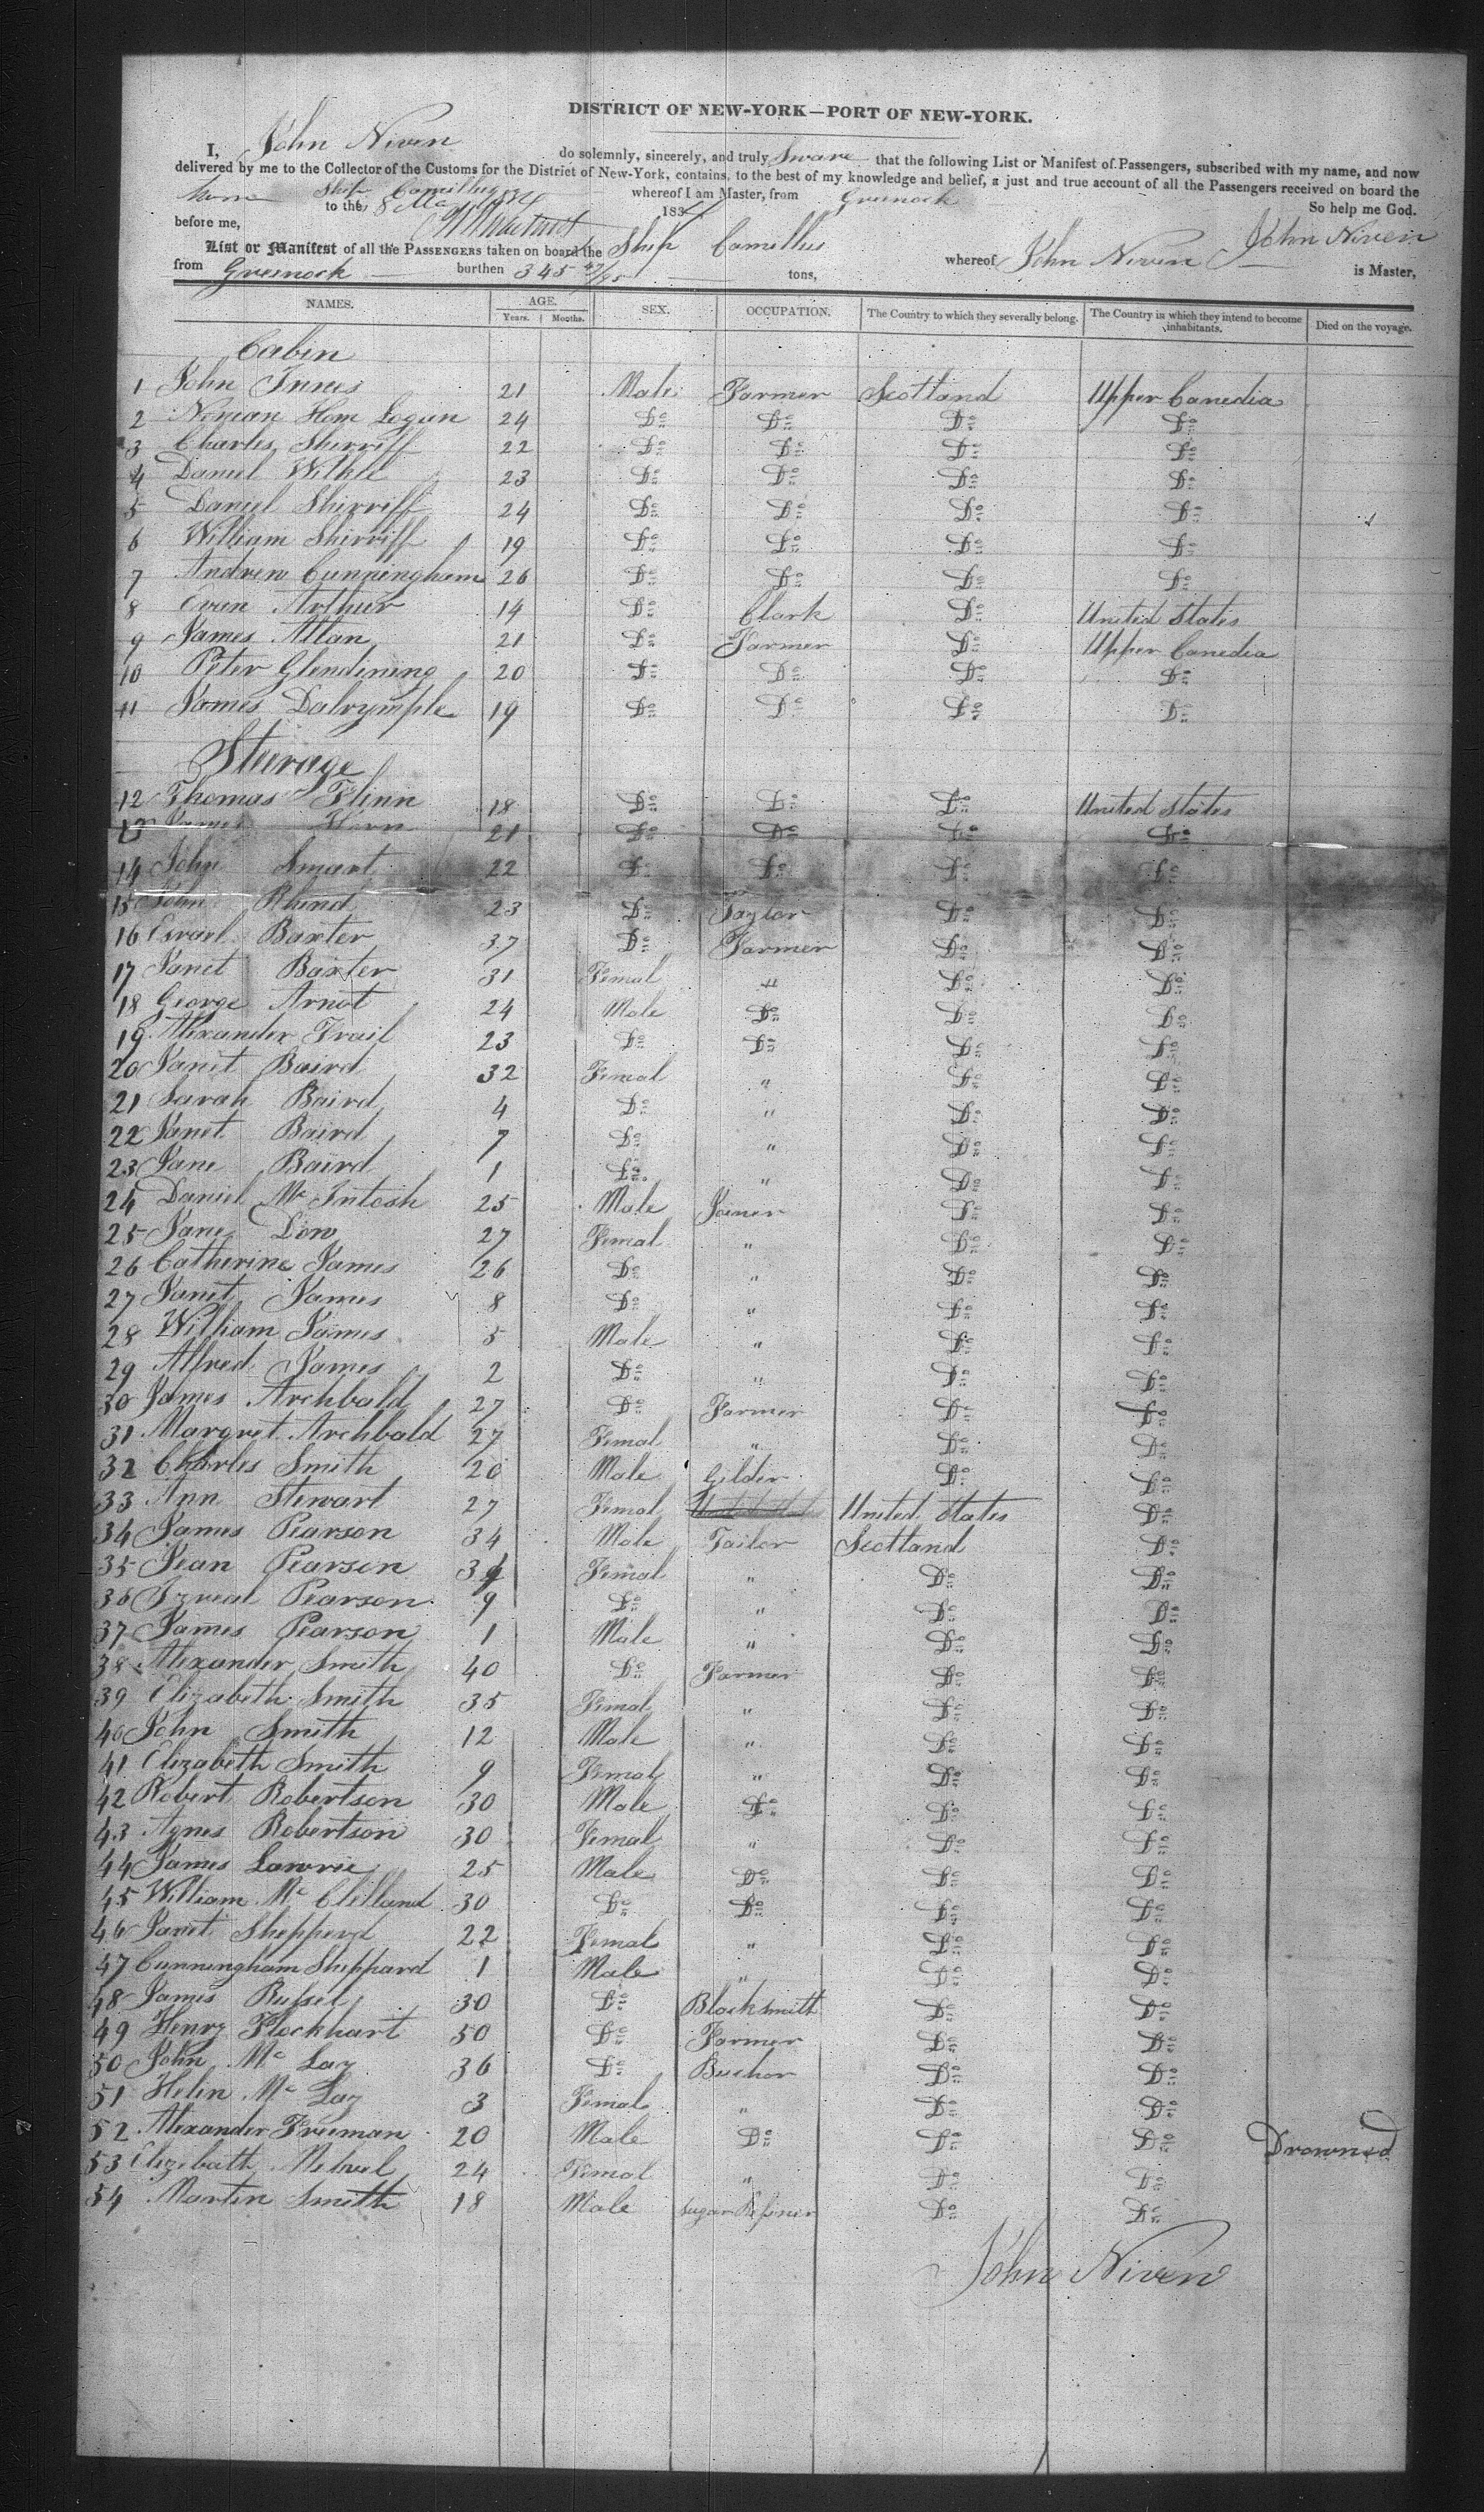 DISTRICT OF NEW-YORK—PORT OF NEW-YORK.
I, John Niven do solemnly, sincerely, and truly Sware that the following List or Manifest of Passengers, subscribed with my name, and now
delivered by me to the Collector of the Customs for the District of New-York, contains, to the best of my knowledge and belief, a just and true account of all the Passengers received on board the
Ship Camillus whereof I am Master, from Greenock
Sworn to the 8 1834 So help me God.
before me, John Niven
List or Manifest of all the PASSENGERS taken on board the Ship Camillus whereof John Niven is Master,
from Greenock burthen 345 tons,
NAMES. AGE. SEX. OCCUPATION. The Country to which they severally belong. The Country in which they intend to become inhabitants. Died on the voyage.
Years. Months.
Cabin
1 John Innes 21 Male Farmer Scotland Upper Canedia
2 Horn Logan 24 Do Do Do Do
3 Charles Shirriff 22 Do Do Do Do
4 Daniel 23 Do Do Do Do
5 Daniel Shirriff 24 Do Do Do Do
6 William Shirriff 19 Do Do Do Do
7 Andrew Cunningham 26 Do Do Do Do
8 Evan Arthur 14 Do Clark Do United States
9 James Allan 21 Do Farmer Do Upper Canedia
10 Peter Glendening 20 Do Do Do Do
11 James Dalrymple 19 Do Do Do Do
Sturage
12 Thomas Flinn 18 Do Do Do United States
13 James Horn 21 Do Do Do Do
14 John Smart 22 Do Do Do Do
15 John Rhind 23 Do Taylor Do Do
16 Esrael Baxter 37 Do Farmer Do Do
17 Janet Baxter 31 Femal " Do Do
18 George Arnot 24 Male Do Do Do
19 Alexander Frail 23 Do Do Do Do
20 Janet Baird 32 Femal " Do Do
21 Sarah Baird 4 Do " Do Do
22 Janet Baird 7 Do " Do Do
23 Jane Baird 1 Do " Do Do
24 Daniel Mc Intosh 25 Male Joiner Do Do
25 Jane Dow 27 Femal " Do Do
26 Catherine James 26 Do " Do Do
27 Janet James 8 Do " Do Do
28 William James 5 Male " Do Do
29 Alfred James 2 Do " Do Do
30 James Archbald 27 Do Farmer Do Do
31 Margret Archbald 27 Femal " Do Do
32 Charles Smith 20 Male Gilder Do Do
33 Ann Stewart 27 Femal United States Do
34 James Pearson 34 Male Tailor Scotland Do
35 Jean Pearson 34 Femal " Do Do
36 Izreal Pearson 9 Do " Do Do
37 James Pearson 1 Male " Do Do
38 Alexander Smith 40 Do Farmer Do Do
39 Elizabeth Smith 35 Femal " Do Do
40 John Smith 12 Male " Do Do
41 Elizabeth Smith 9 Femal " Do Do
42 Robert Robertson 30 Male Do Do Do
43 Agnes Robertson 30 Femal " Do Do
44 James Lawrie 25 Male Do Do Do
45 William Mc Clelland 30 Do Do Do Do
46 Janet Shepperd 22 Femal " Do Do
47 Cunningham Sheppard 1 Male " Do Do
48 James Russel 30 Do Blacksmith Do Do
49 Henry Flockhart 50 Do Farmer Do Do
50 John Mc Lay 36 Do Buchor Do Do
51 Helen Mc Lay 3 Femal " Do Do
52 Alexander Freeman 20 Male Do Do Do Drowned
53 Elizebath 24 Femal " Do Do
54 Martin Smith 18 Male Sugar Refiner Do Do
John Niven